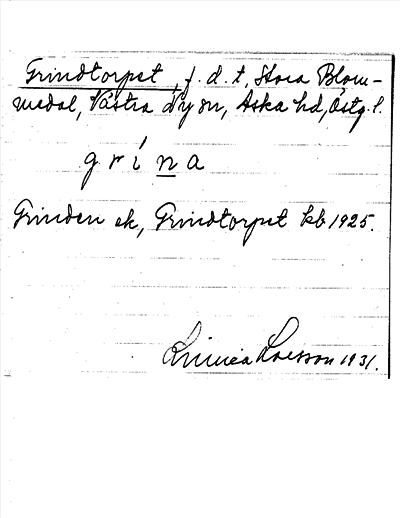 Grindtorpet, f. d. t, Stora Blom-
medal, Västra Ny sn, Aska hd, Östg. l.
grína
Grinden ek, Grindtorpet kb 1925.
Linnéa Larsson 1931.